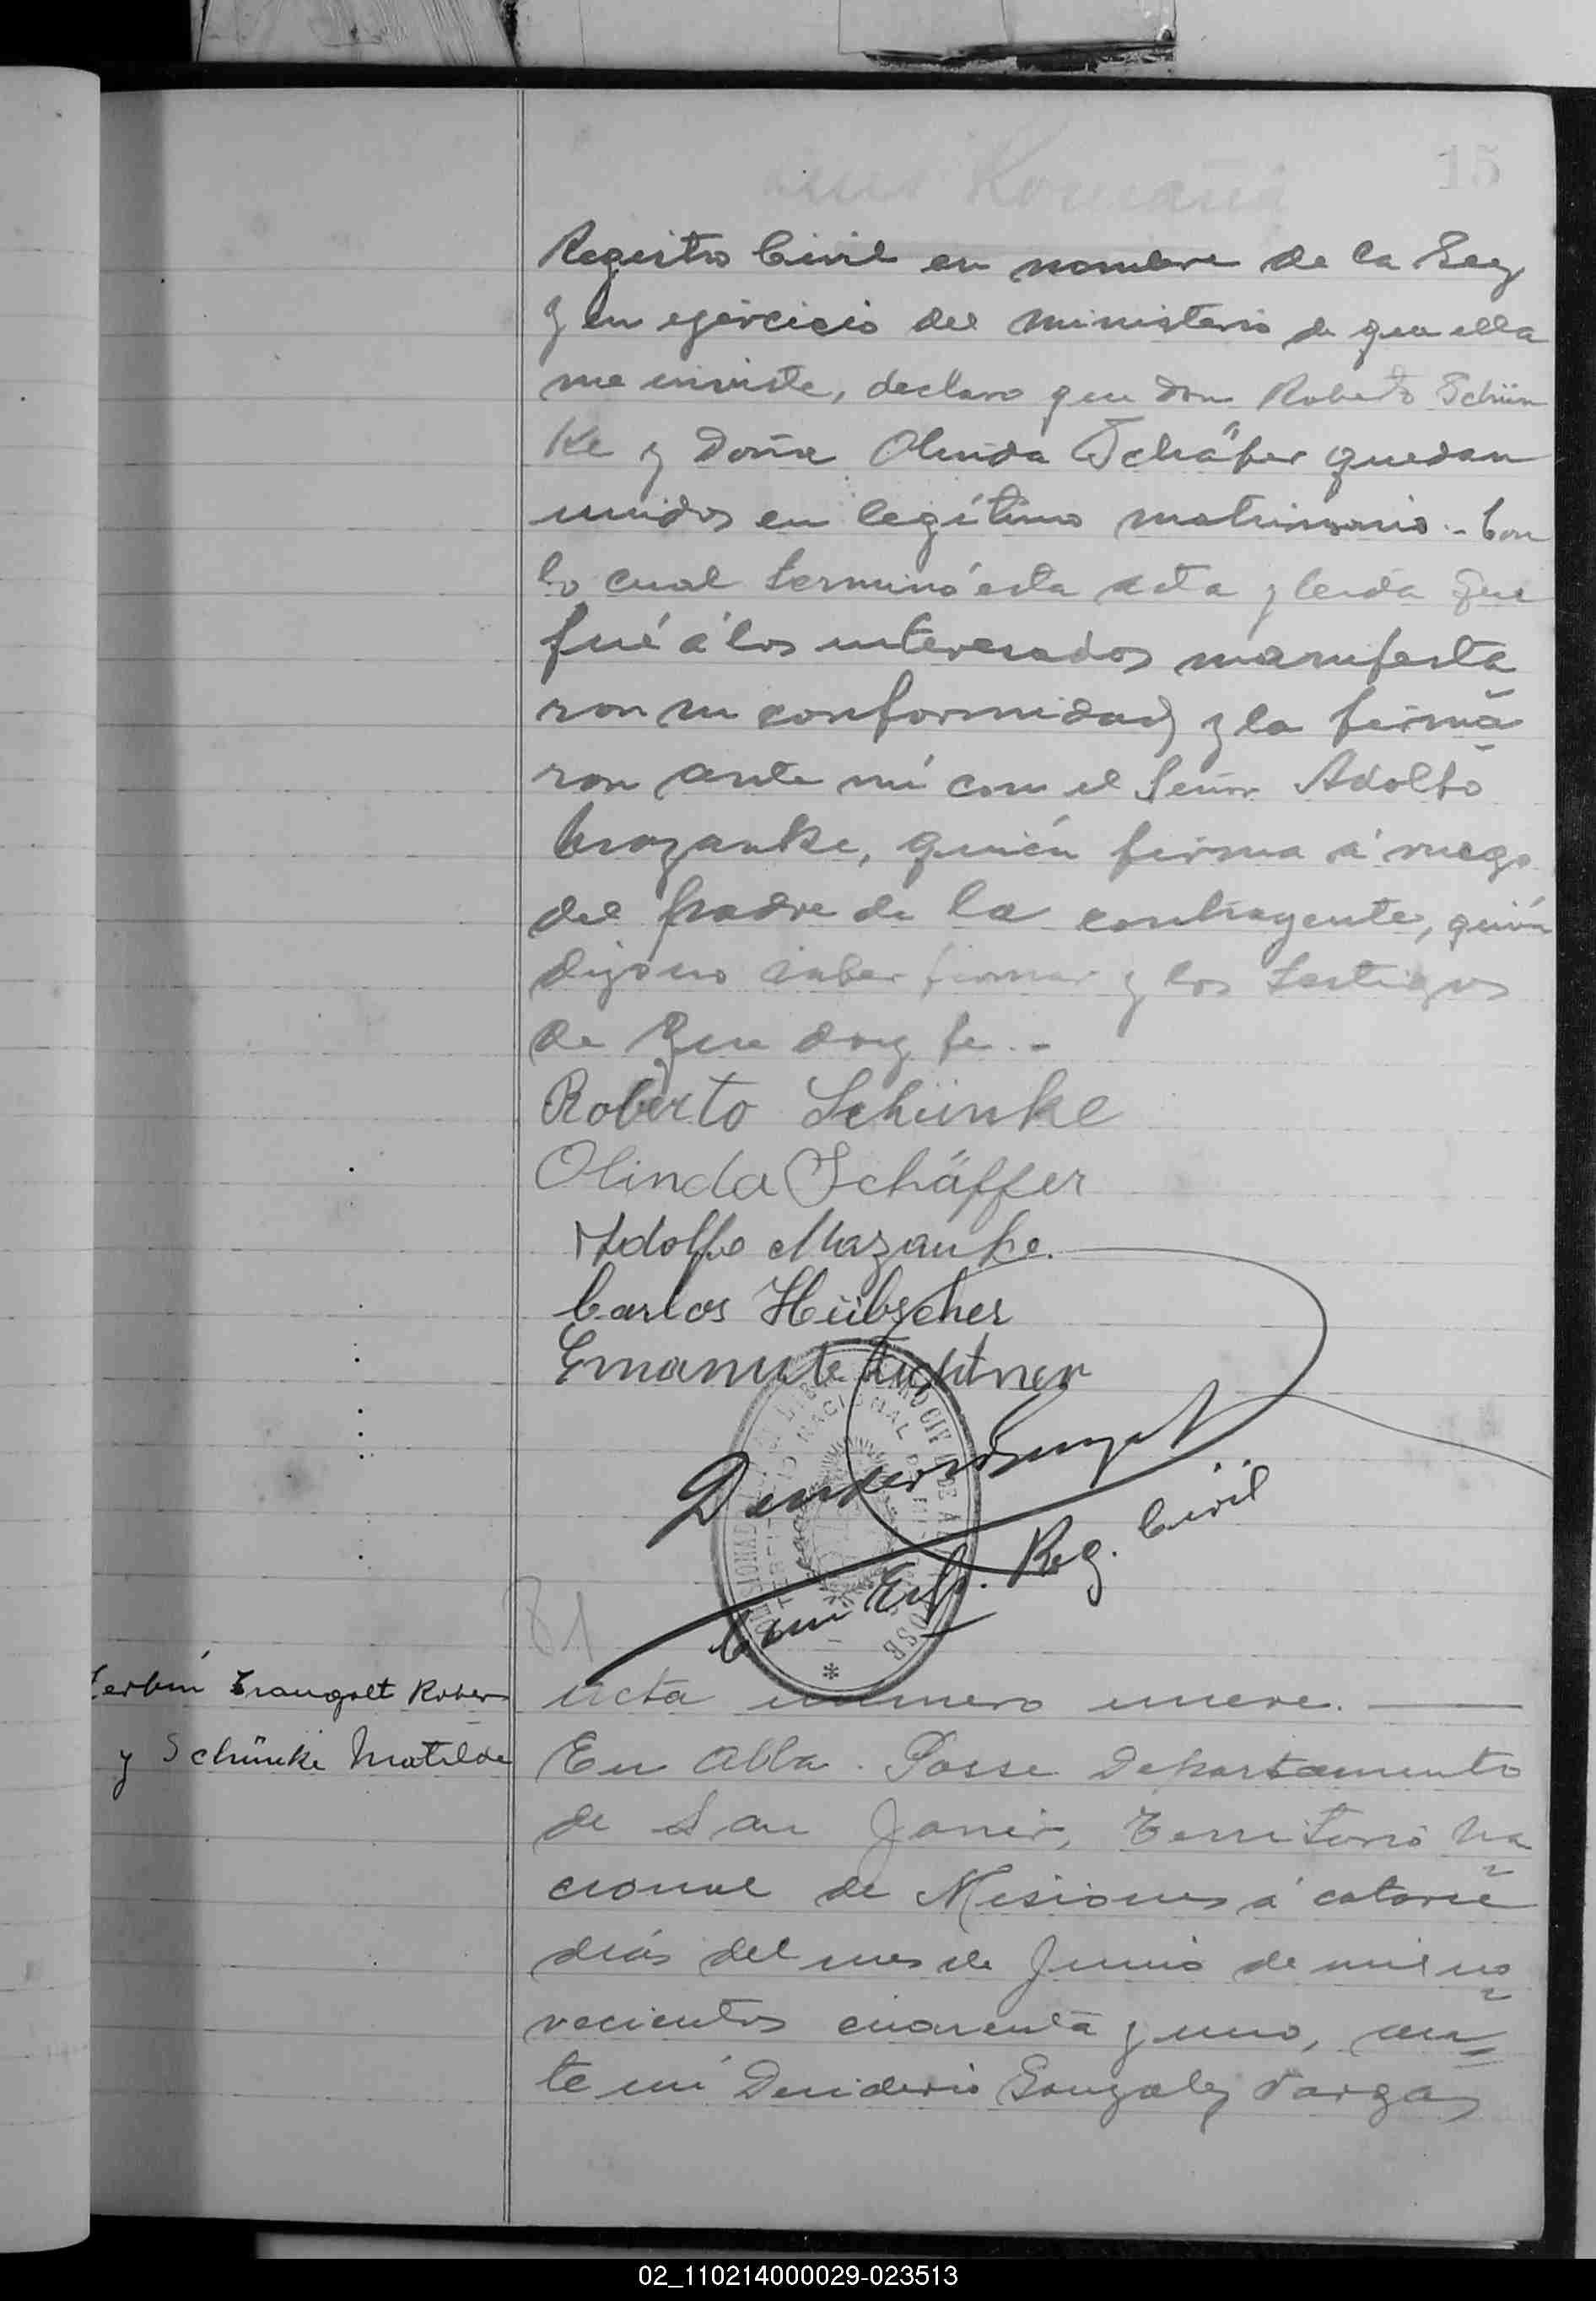 15
Registro Civil en nombre de la Ley
y en ejercicio del ministerio de que ella
me inviste, declaro que don Roberto Schün
ke y doña Olinda Schäfer quedan
unidos en legítimo matrimonio.- Con
lo cual terminó esta acta y leida que
fué á los interesados manifesta
ron su conformidad y la firma
ron ante mí con el Señor Adolfo
Mazanke, quién firma á ruego
del padre de la contrayente, quién
dijo no saber firmar y los testigos
de que doy fe.-
Roberto Schünke
Olinda Schäffer
Adolfo Mazanke.
Carlos Hübscher
Emanuel
Reg. Civil
81
Acta número nueve.
Traugolt Rober
y Schünke Matilde
En Alba Posse Departamento
de San Javier, Territorio Na
cional de Misiones á catorce
dias del mes de Junio de mil no
vecientos cuarenta y uno, an
te mí Desiderio Gonzalez Vargas
02_110214000029-023513